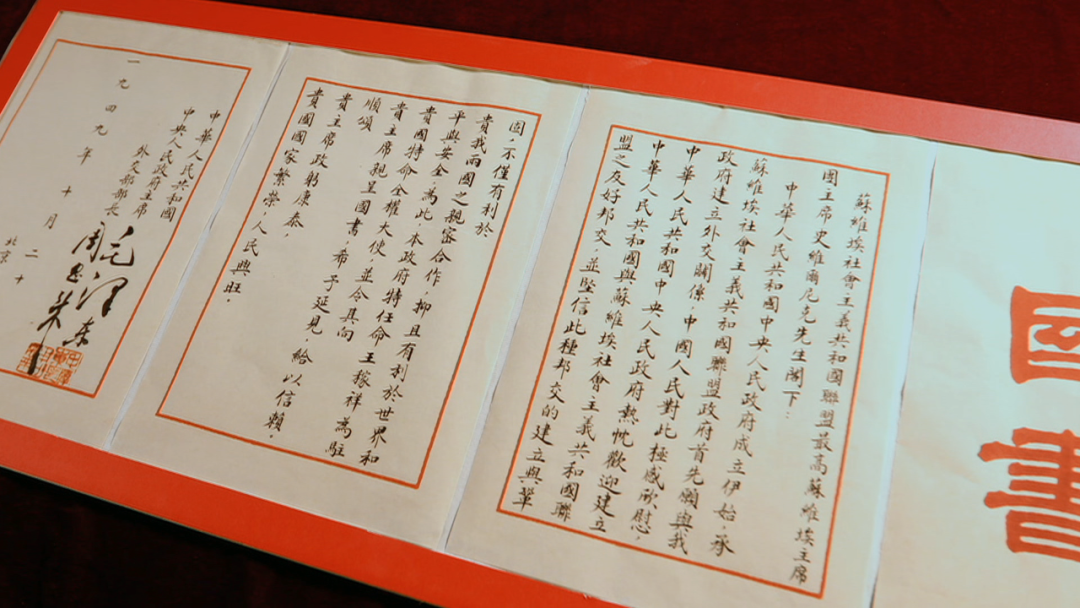 國書
蘇維埃社會主義共和國聯盟最高蘇維埃主席
團主席史維爾尼克先生閣下：
中華人民共和國中央人民政府成立伊始，承
蘇維埃社會主義共和國聯盟政府首先願與我
政府建立外交關係，中國人民對此極感欣慰，
中華人民共和國中央人民政府熱忱歡迎建立
中華人民共和國與蘇維埃社會主義共和國聯
盟之友好邦交，並堅信此種邦交的建立與鞏
固，不僅有利於
貴我兩國之親密合作，抑且有利於世界和
平與安全，為此，本政府特任命王稼祥為駐
貴國特命全權大使，並令其向
貴主席親呈國書，希予延見，給以信賴。
順頌
貴主席政躬康泰，
貴國國家繁榮，人民興旺。
中華人民共和國
中央人民政府主席 毛澤東
外交部部長 周恩來
一九四九年十月二十
北京